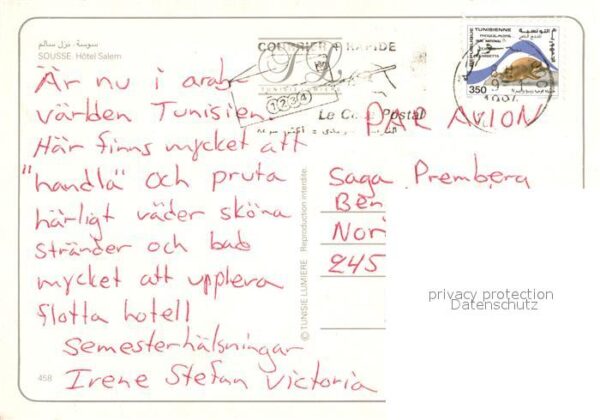 سوسة - نزل سالم
SOUSSE Hôtel Salem
Är nu i arab-
världen Tunisien.
Här finns mycket att
"handla" och pruta
härligt väder sköna
stränder och bad
mycket att uppleva
flotta hotell
Semesterhälsningar
Irene Stefan Victoria
458
© TUNISIE LUMIERE Reproduction interdite
COURRIER + RAPIDE
1234
Le Code Postal
TUNISIENNE
350
1994
PAR AVION
Saga Premberg
Ben
Nor
245
privacy protection
Datenschutz